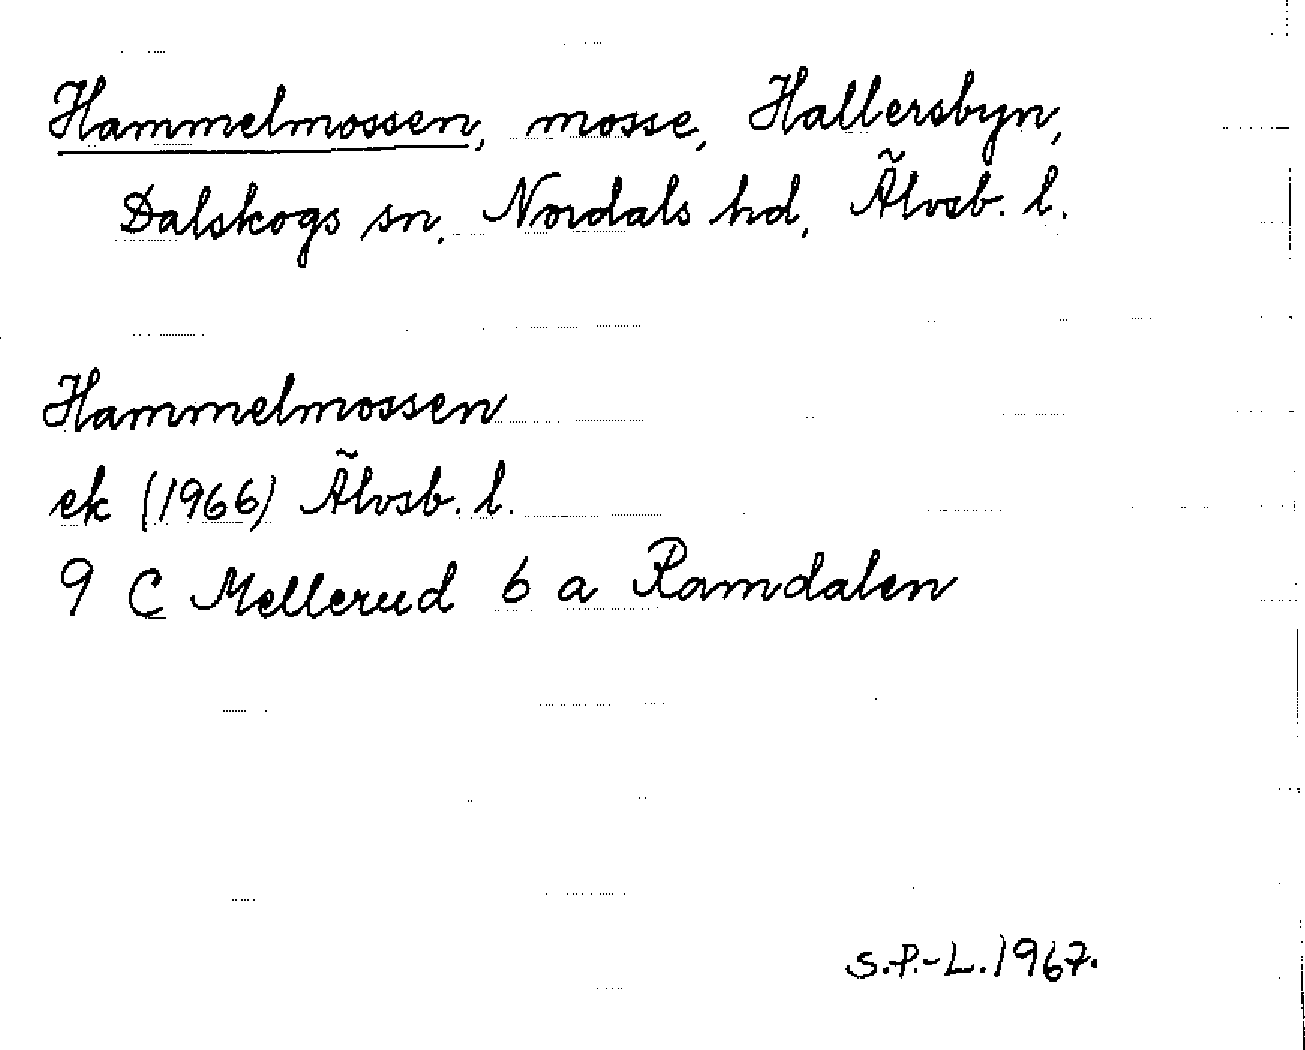 Hammelmossen, mosse, Hallersbyn,
Dalskogs sn, Nordals hd, Älvsb. l.
Hammelmossen
ek (1966) Älvsb. l.
9 C Mellerud 6 a Ramdalen
S.P.-L. 1967.